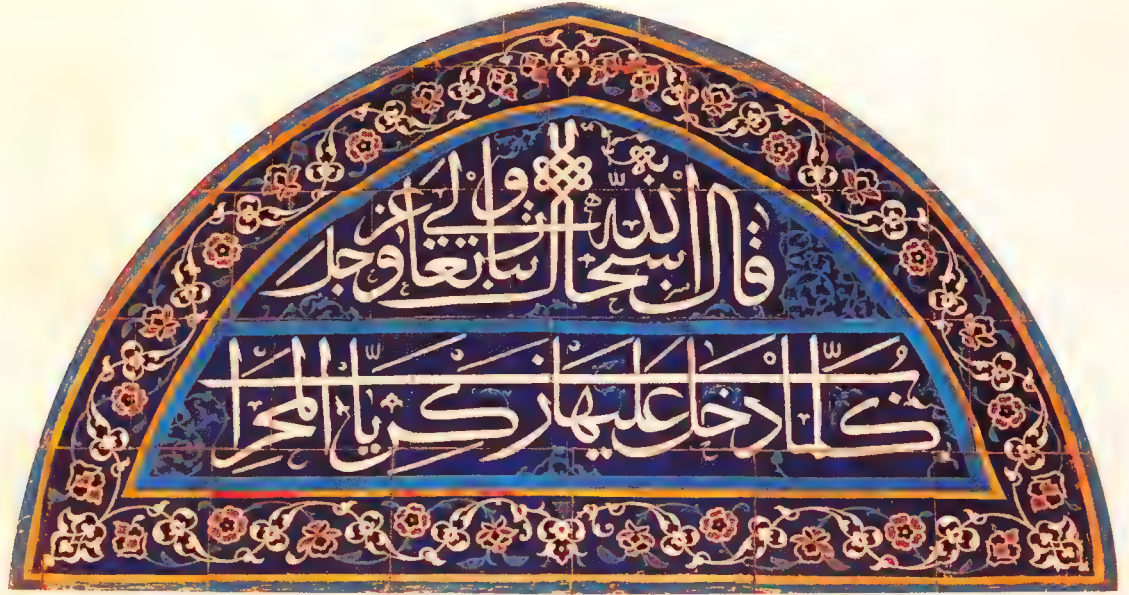 قال الله سبحانه تعالى عز وجل
كلما دخل عليها زكريا المحراب